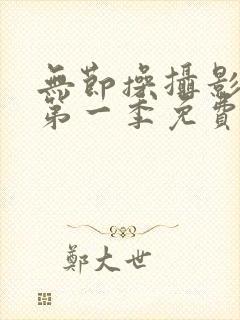 無節操攝影
第一季免費
鄭大世